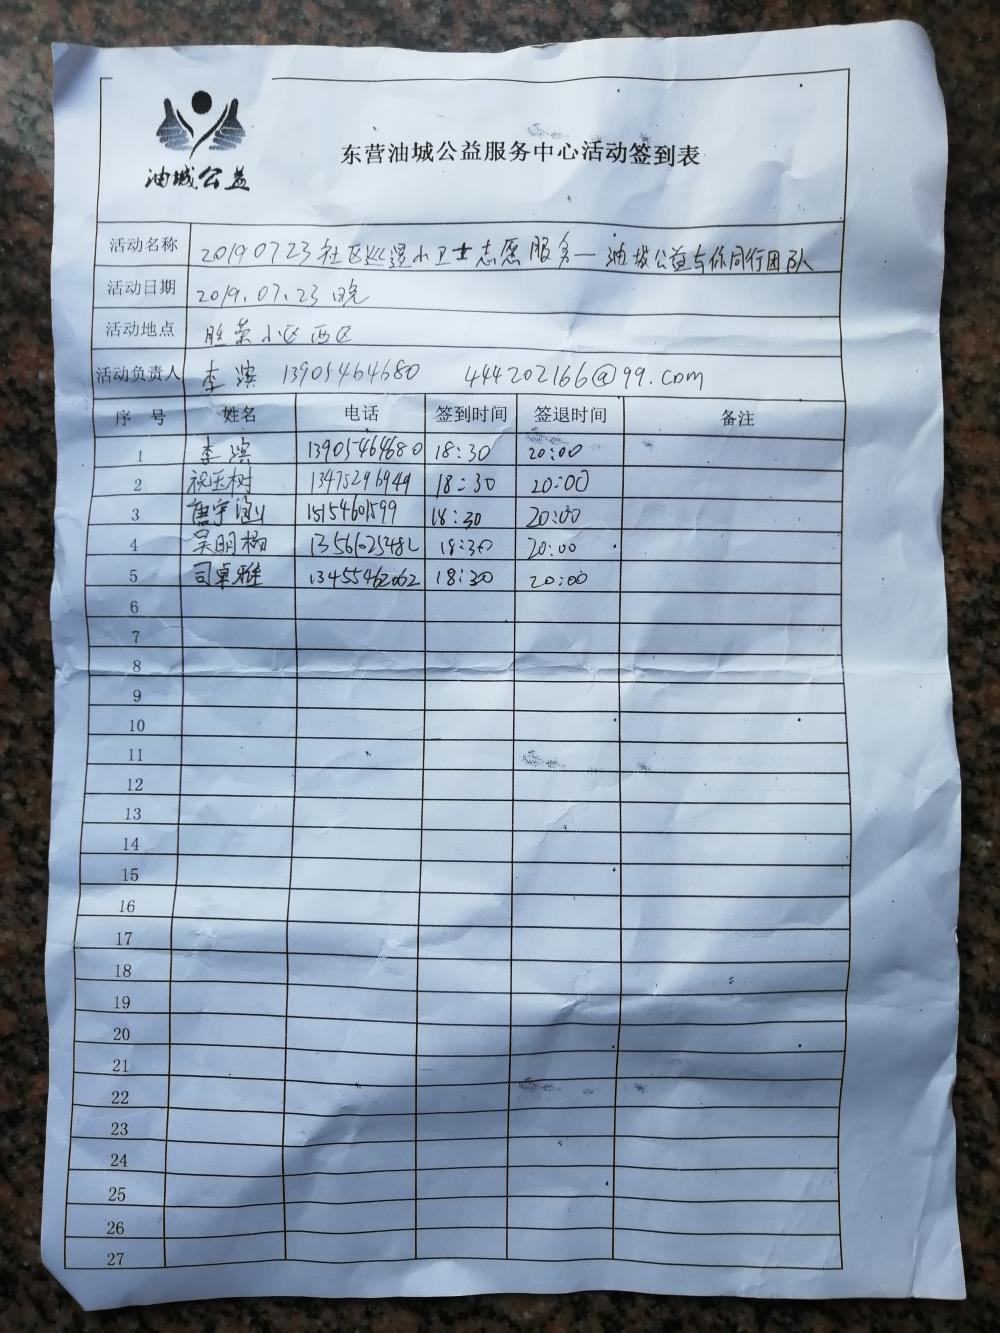 油城公益
东营油城公益服务中心活动签到表
活动名称 20190723社区巡逻小卫士志愿服务—油城公益与你同行团队
活动日期 2019.07.23 晚
活动地点 胜荣小区西区
活动负责人 李滨 13905464680 444202166@99.com
序号 姓名 电话 签到时间 签退时间 备注
1 李滨 13905464680 18:30 20:00
2 祝玉树 13475296949 18:30 20:00
3 15154601599 18:30 20:00
4 吴明杨 18:30 20:00
5 司卓雅 13455462062 18:30 20:00
6
7
8
9
10
11
12
13
14
15
16
17
18
19
20
21
22
23
24
25
26
27